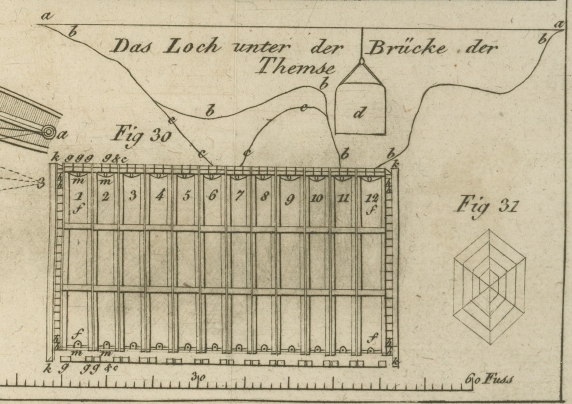 a a
b b
Das Loch unter der Brücke der
Themse
b
b c
c d
Fig 30
a
c c b b
k g g g g & c k
m m
3
1 2 3 4 5 6 7 8 9 10 11 12
f f
Fig 31
f f
m m
k g g g & c k
30 60 Fuss